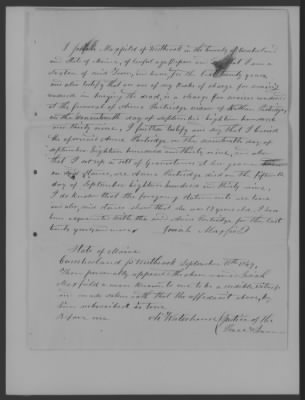 I Josiah Maxfield of Westbrook in the County of Cumberland
and State of Maine, of lawful age depose and say that I am a
Sexton of said Town, and have for the last twenty years,
and also testify that on one of my books of charge for services
rendered in burying the dead, is a charge for services rendered
at the funeral of Anna Partridge widow of Nathan Partridge,
on the seventeenth day of September eighteen hundred
and thirty nine, I further testify and say that I buried
the aforesaid Anna Partridge on the seventeenth day of
September eighteen hundred and thirty nine, and also
that I set up a sett of Gravestones at her grave
on said Stones, are Anna Partridge died on the fifteenth
day of September eighteen hundred and thirty nine,
I do know that the foregoing statements are true
been acquainted with the said Anna Partridge for the last
twenty years and more Josiah Maxfield
State of Maine
Cumberland ss Westbrook September
Then personally appeared the above named Josiah
Maxfield a man known to me to be a credible witness
and made oath that the affidavit above by
him subscribed is true
Before me Waterhouse Justice of the
Peace